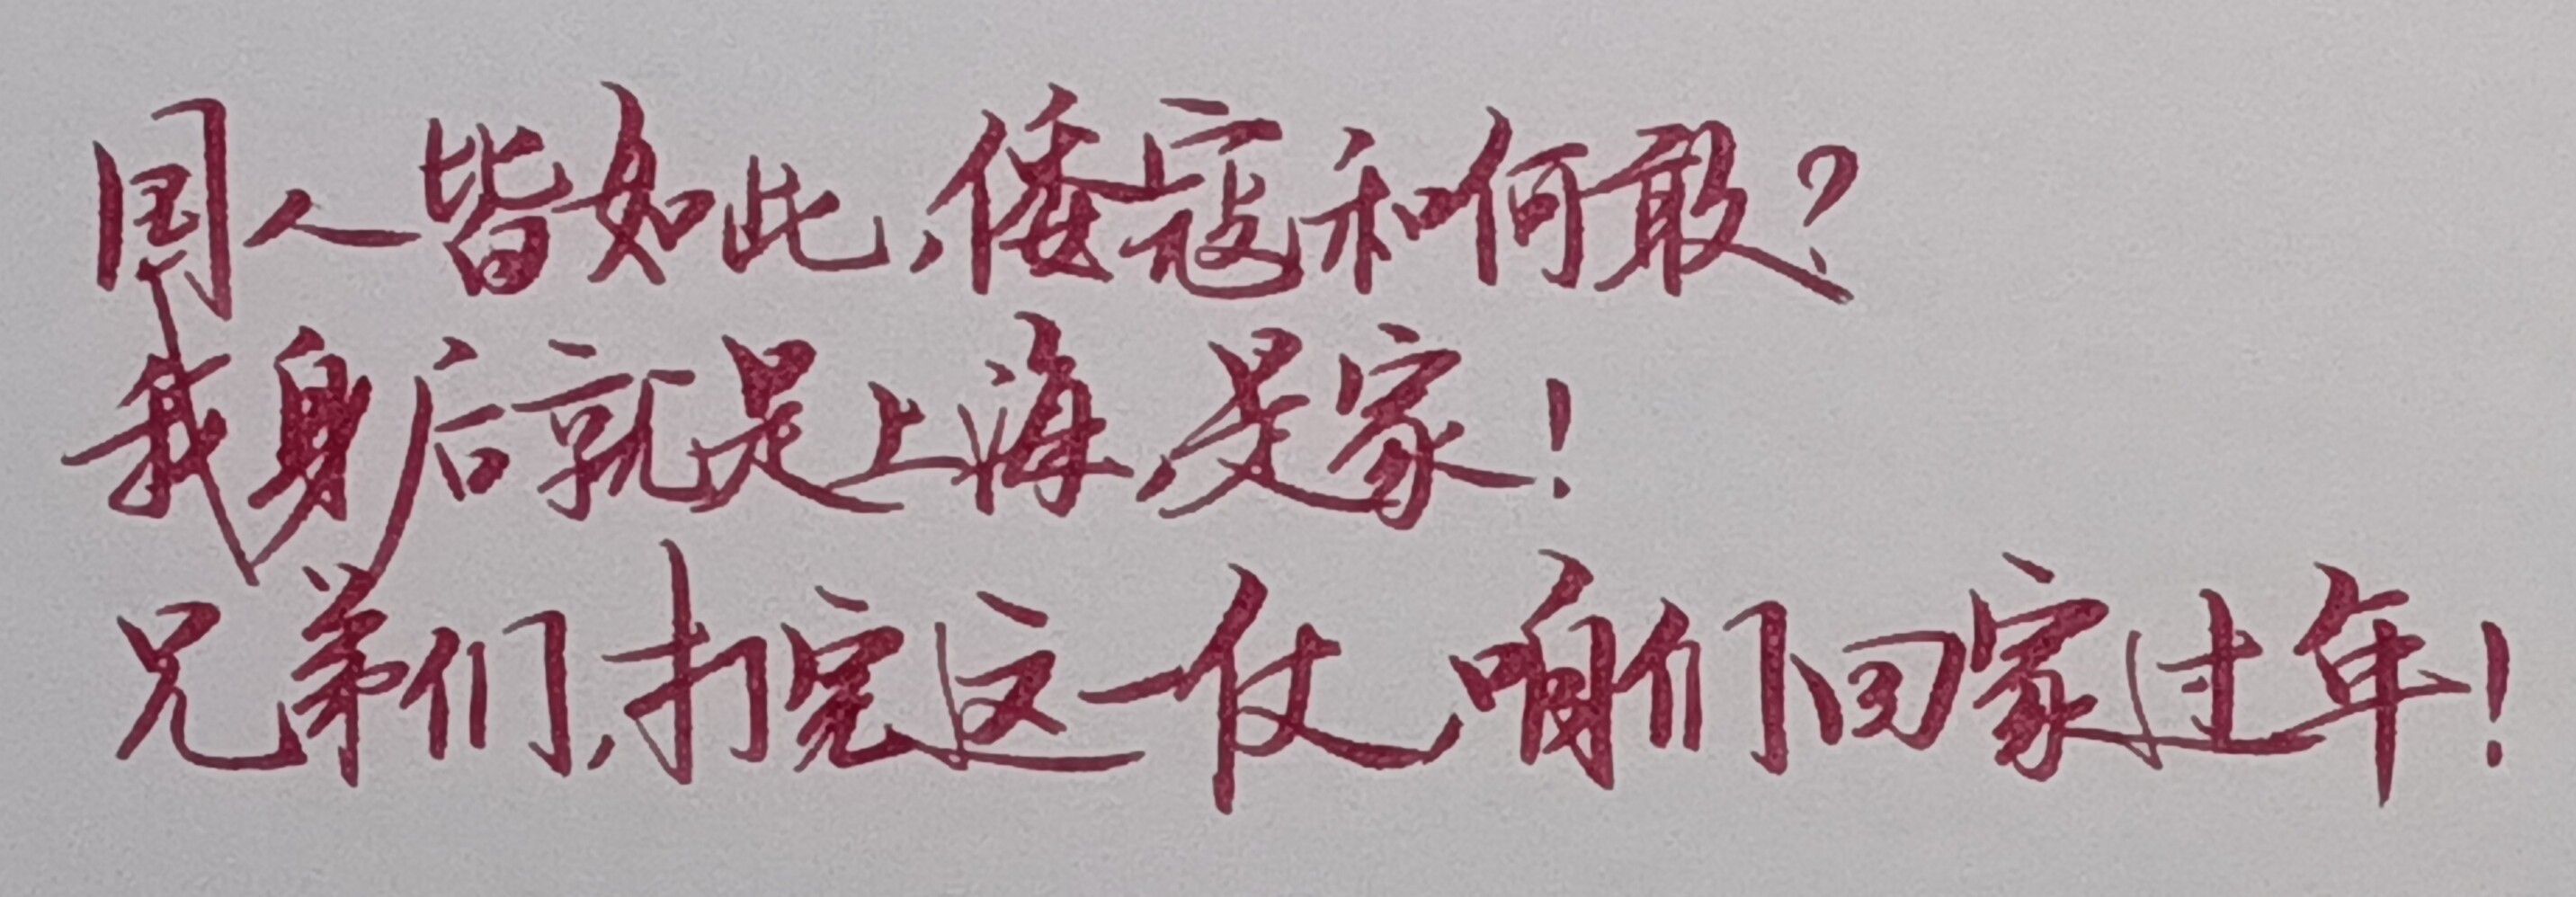 国人皆如此,倭寇和何敢?
我身后就是上海,是家!
兄弟们,打完这一仗,咱们回家过年!